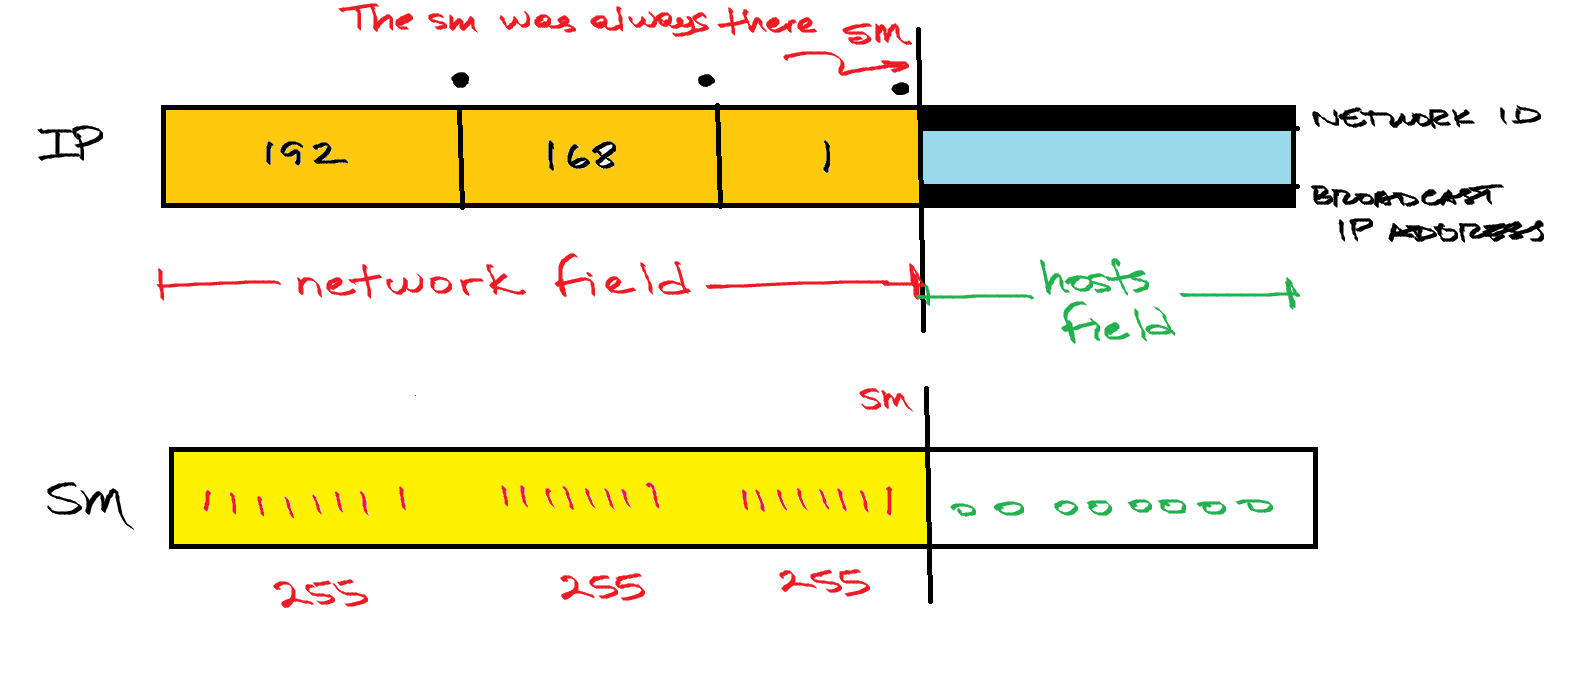 The sm was always there sm
IP 192 168 1
NETWORK ID
BROADCAST
IP ADDRESS
network field
hosts
field
sm
sm 11111111 11111111 11111111 00000000
255 255 255